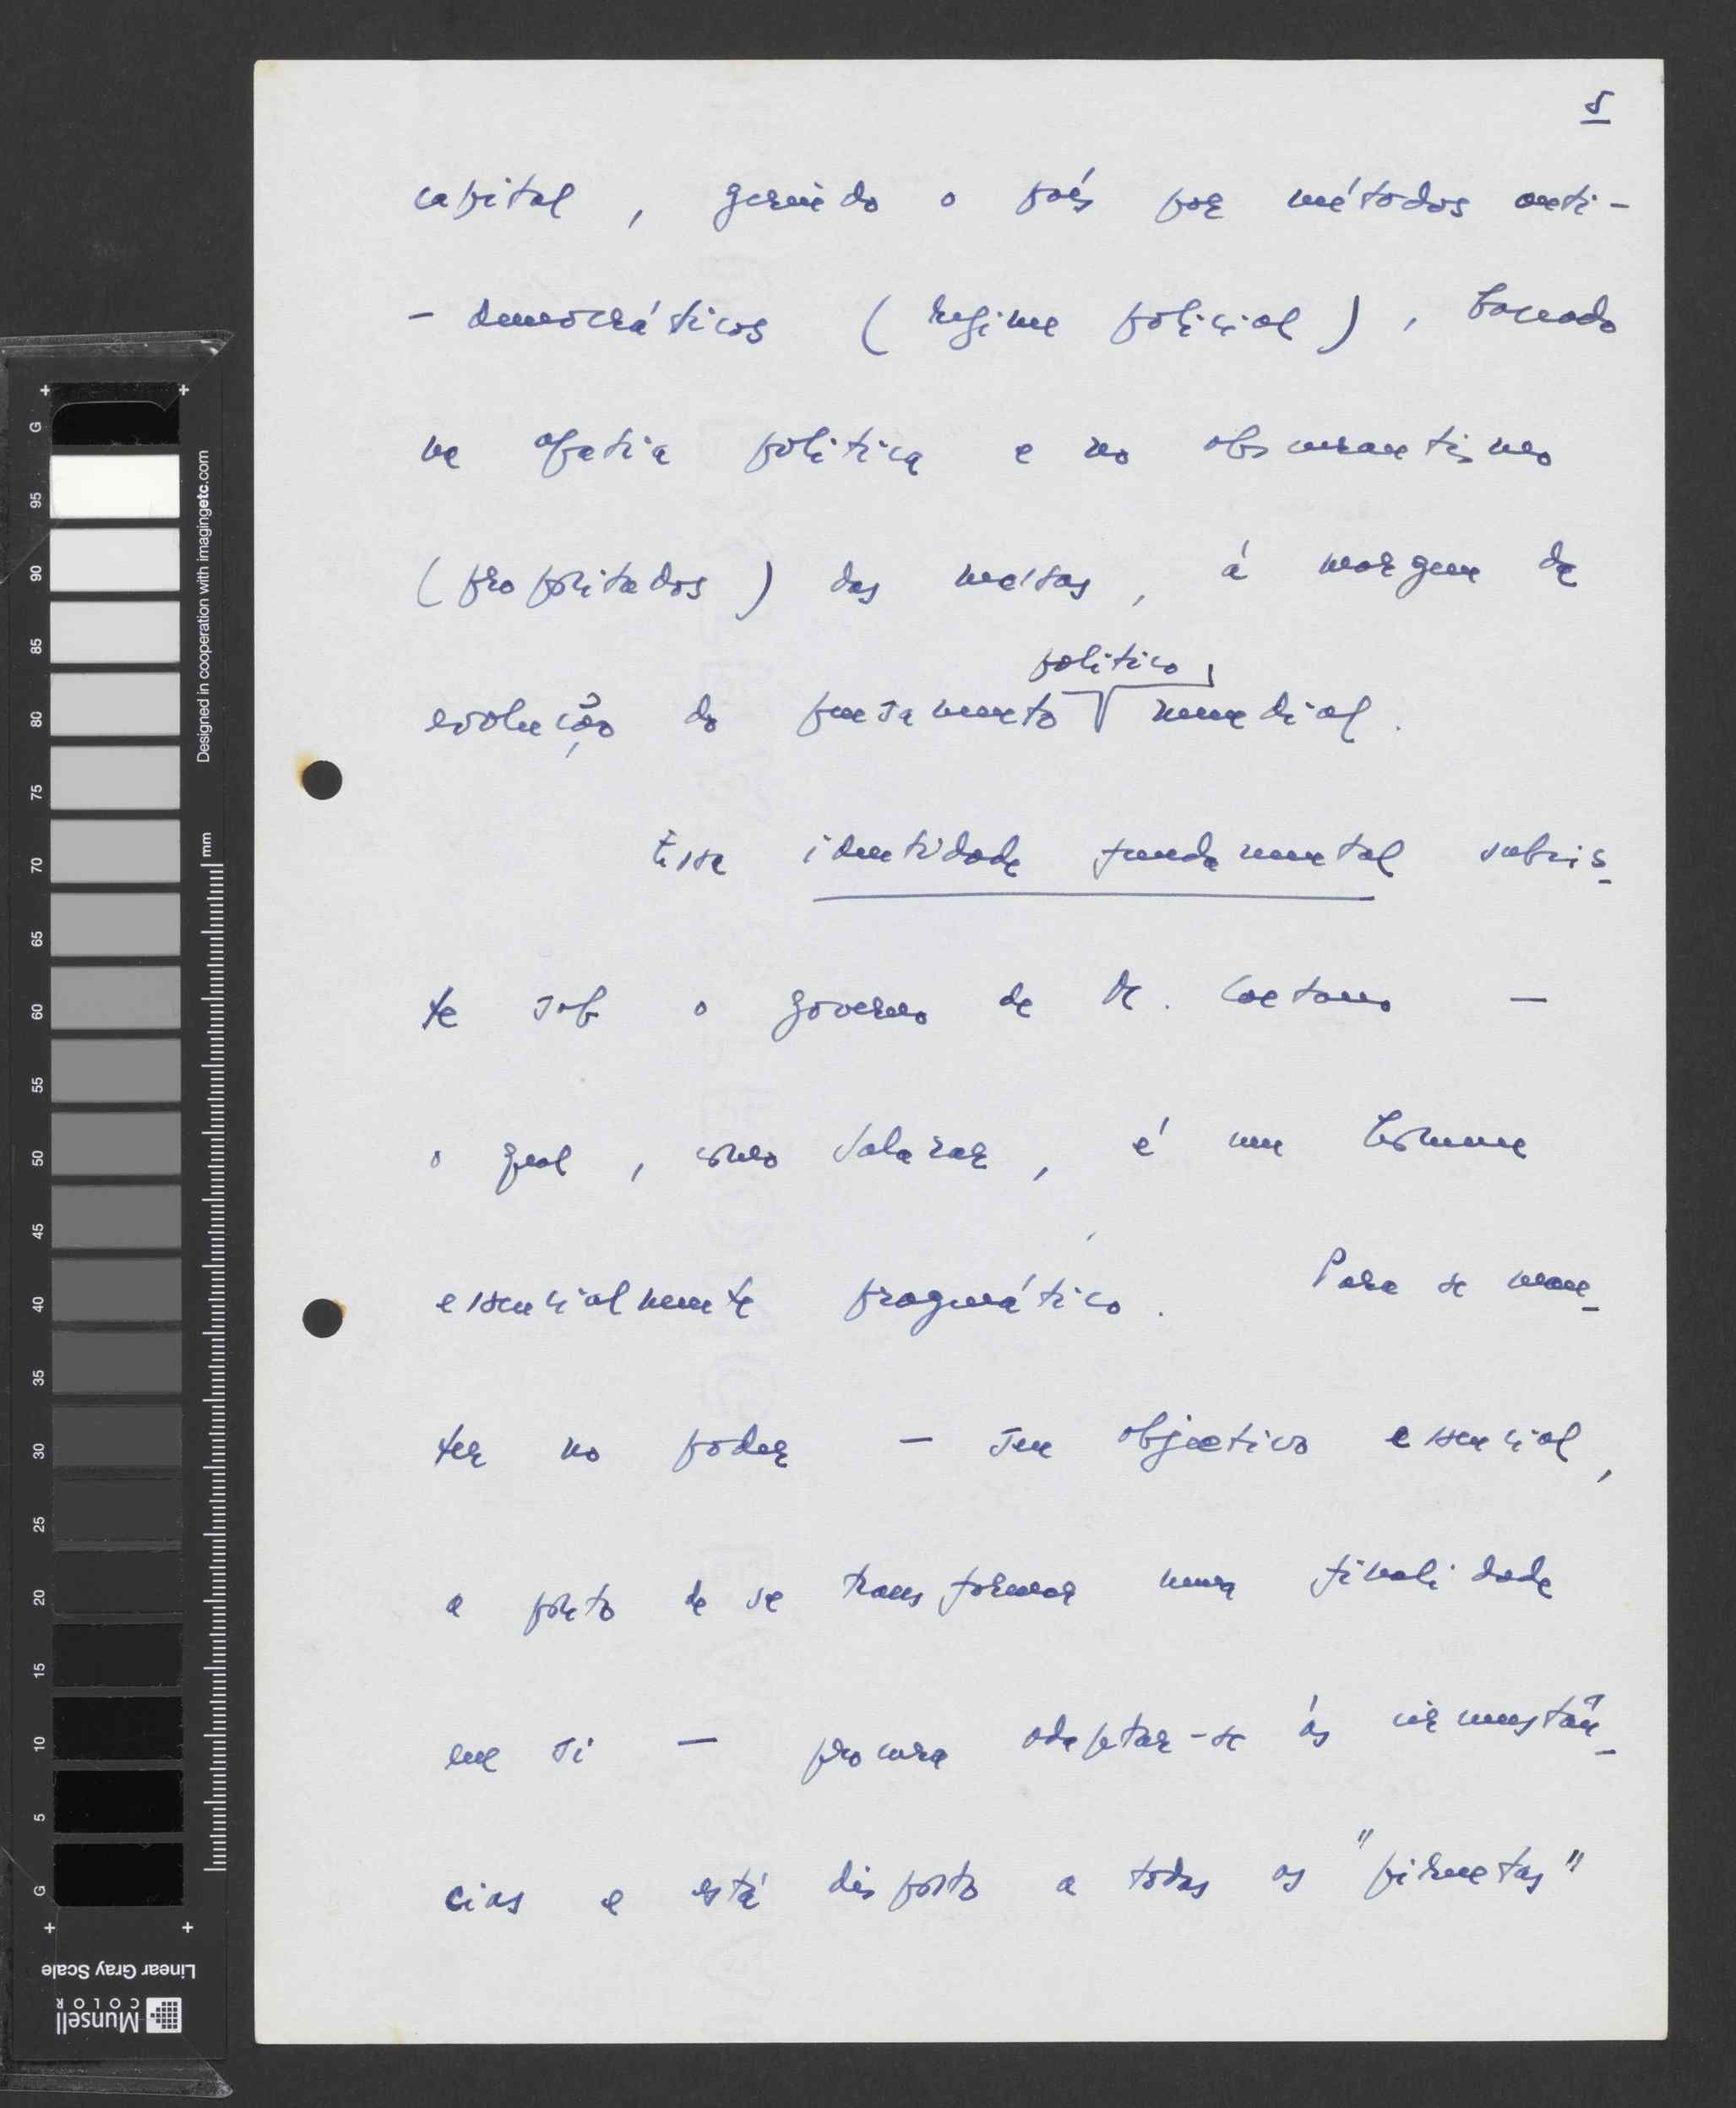 5
capital, gerindo o país por métodos anti-
- democráticos (regime policial), baseado
na apatia política e no obscurantismo
(propositados) das massas, à margem da
político
evolução do pensamento mundial.
Essa identidade fundamental subsis-
te sob o governo de M. Caetano —
o qual, como Salazar, é um homem
essencialmente pragmático. Para se man-
ter no poder — seu objectivo essencial,
a ponto de se transformar numa finalidade
em si — procura adaptar-se às circunstân-
cias e está disposto a todas as "piruetas"
G
95
90
85
80
75
70
65
60
55
50
45
40
35
30
25
20
15
10
5
G
mm
Designed in cooperation with imagingetc.com
Linear Gray Scale
Munsell
COLOR